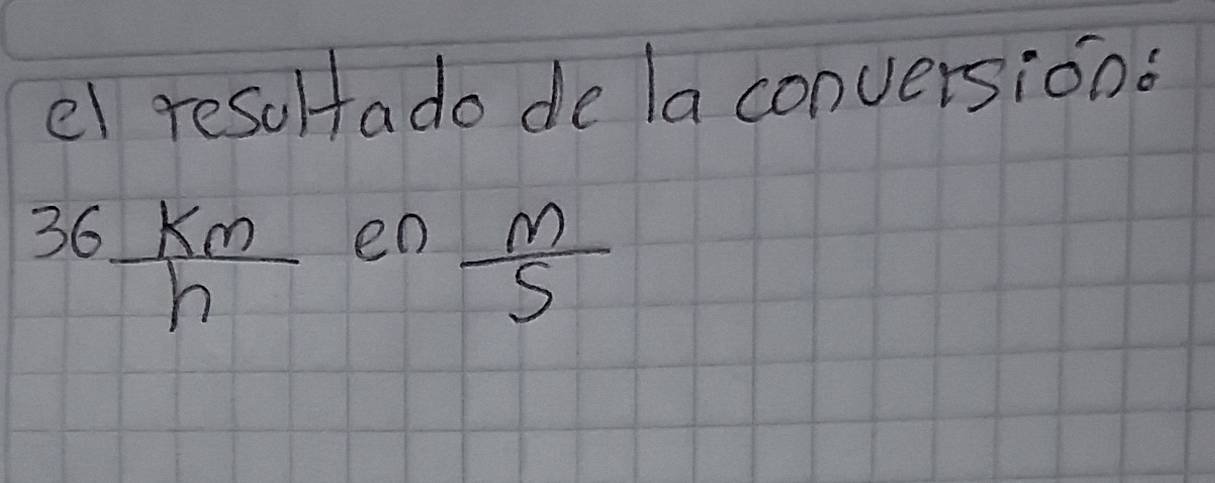 el resultado de la conversión:
36 Km/h en m/s